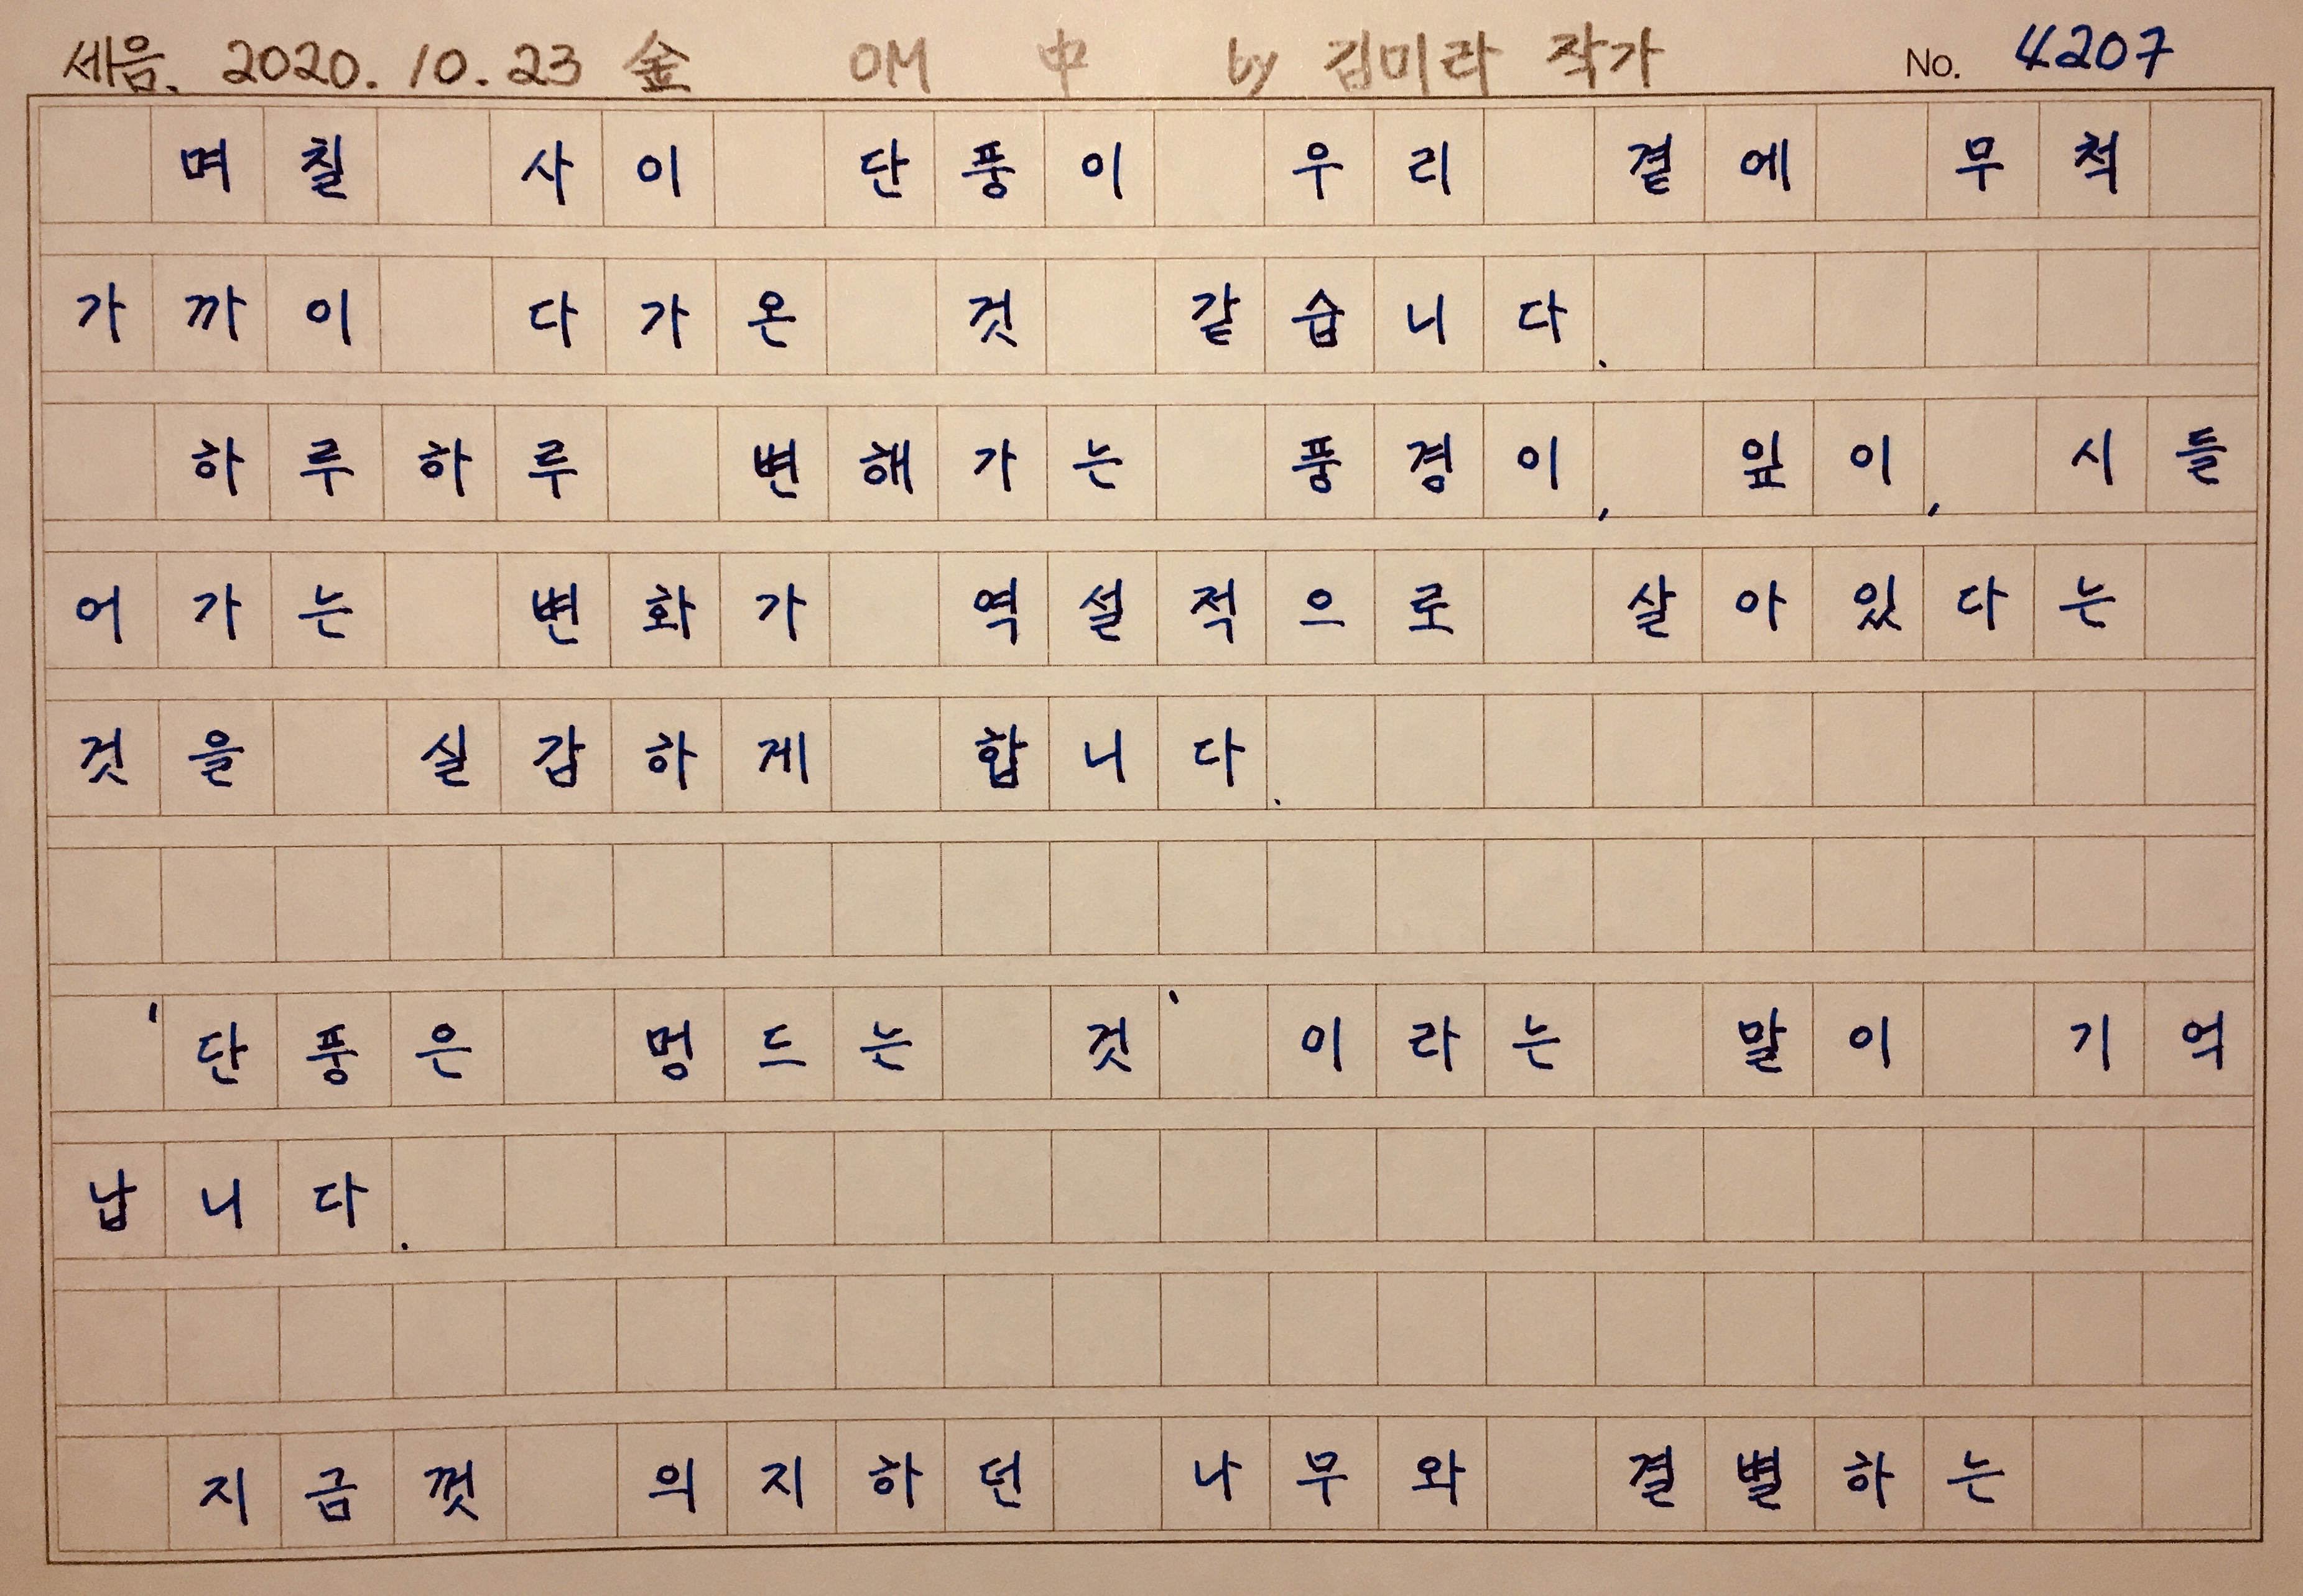 세음. 2020. 10. 23 金 OM 中 by 김미라 작가 No. 4207
며칠 사이 단풍이 우리 곁에 무척
가까이 다가온 것 같습니다.
하루하루 변해가는 풍경이, 잎이, 시들
어가는 변화가 역설적으로 살아있다는
것을 실감하게 합니다.
'단풍은 멍드는 것' 이라는 말이 기억
납니다.
지금껏 의지하던 나무와 결별하는